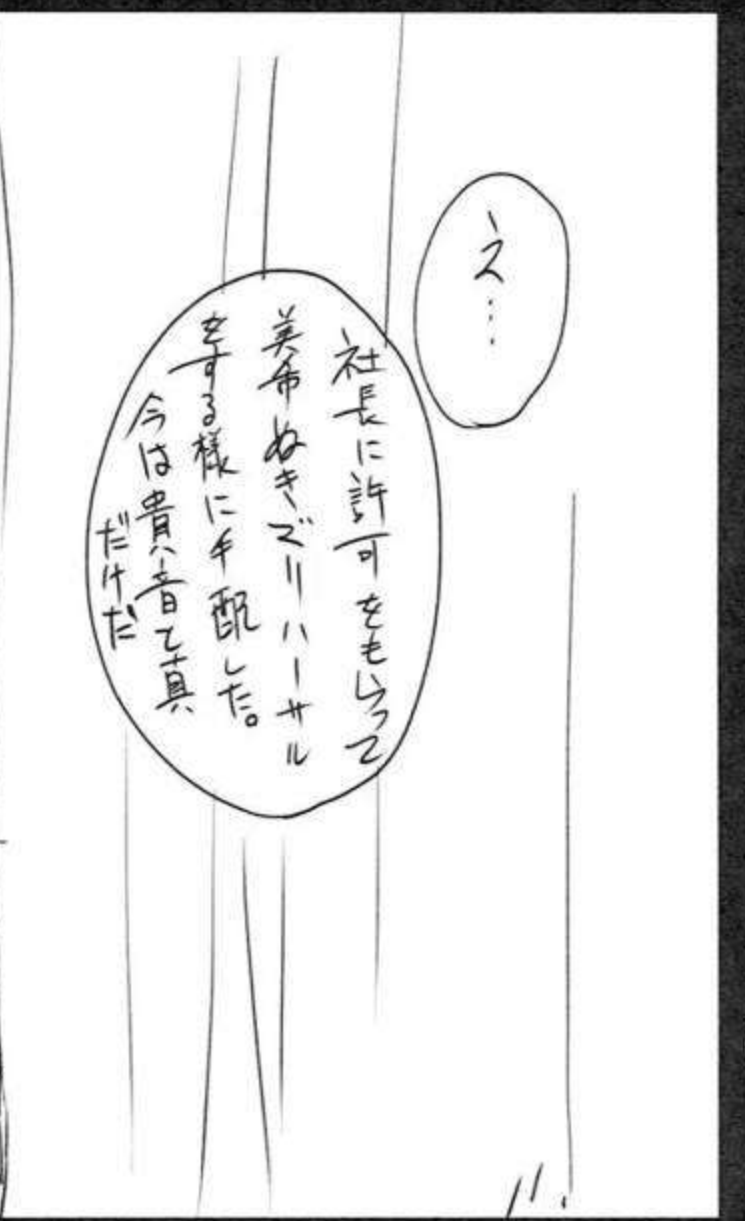 え…
社長に許可をもらって
美希ぬきでリハーサル
をする様に手配した。
今は貴音と真
だけだ